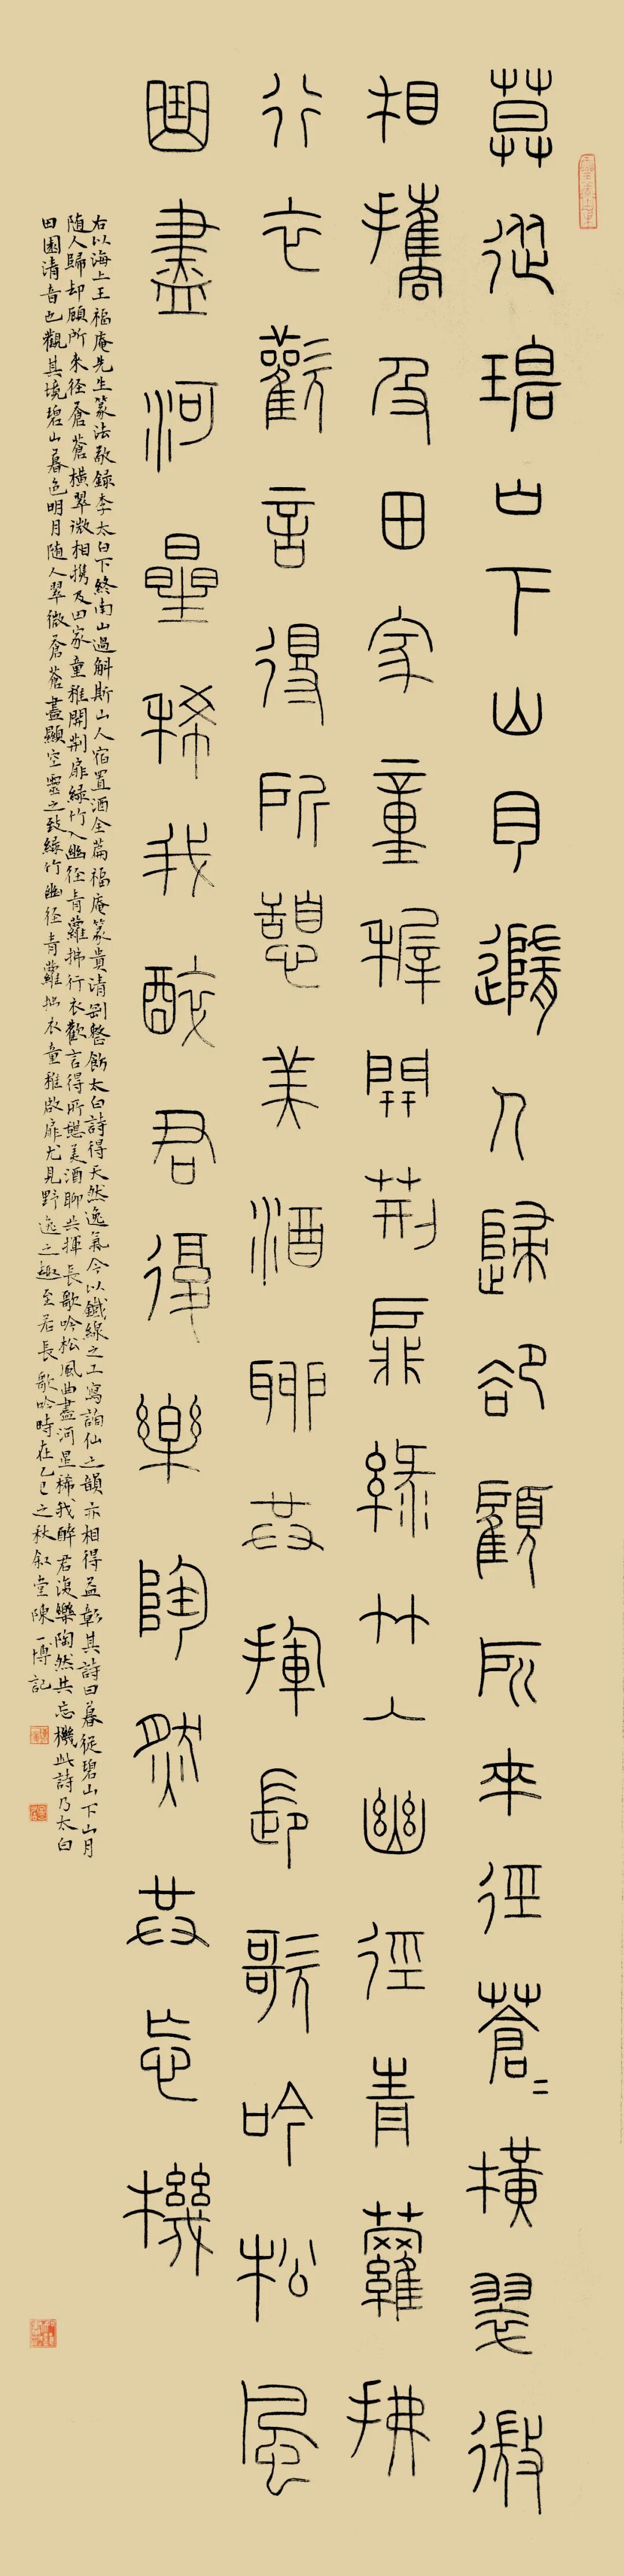 莫從碧山下山月隨人歸卻顧所來徑蒼〻橫翠微
相攜及田家童稚開荊扉綠竹入幽徑青蘿拂
行衣歡言得所憩美酒聊共揮長歌吟松風
曲盡河星稀我醉君復樂陶然共忘機
右以海上王福庵先生篆法敬録李太白下終南山過斛斯山人宿置酒全篇福庵篆貴清剛整飭太白詩得天然逸氣今以鐵線之工寫謫仙之韻亦相得益彰其詩曰暮從碧山下山月
随人歸却顧所來徑蒼蒼橫翠微相携及田家童稚開荆扉綠竹入幽徑青蘿拂行衣歡言得所憩美酒聊共揮長歌吟松風曲盡河星稀我醉君復樂陶然共忘機此詩乃太白
田園清音也觀其境碧山暮色明月随人翠微蒼蒼盡顯空靈之致綠竹幽徑青蘿拂衣童稚啟扉尤見野逸之趣至若長歌吟時在乙巳之秋叙堂陳一博記